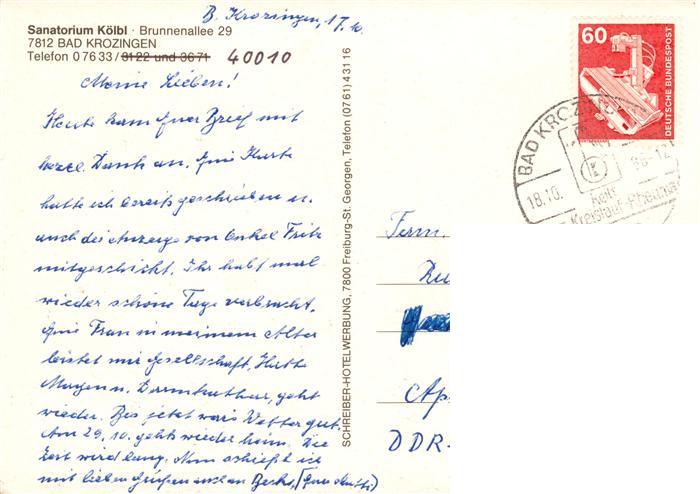 B. Krozingen, 17.10.
Sanatorium Kölbl · Brunnenallee 29
7812 BAD KROZINGEN
Telefon 0 76 33 / 31 22 und 36 71 40010
Meine Lieben!
Heute kam Euer Brief mit
herzl. Dank an. Eine Karte
hatte ich bereits geschrieben u.
auch die Anzeige von Onkel Fritz
mitgeschickt. Ihr habt mal
wieder schöne Tage verbracht.
Eine Frau in meinem Alter
leistet mir Gesellschaft. Hatte
Magen u. Darmkatarrh, geht
wieder. Bis jetzt war's Wetter gut.
Am 29.10. geht's wieder heim. Die
Zeit wird lang. Nun schließt ich
mit lieben Grüßen
SCHREIBER-HOTELWERBUNG, 7800 Freiburg-St. Georgen, Telefon (07 61) 4 31 16
60
DEUTSCHE BUNDESPOST
BAD KROZIN
18.10. -12
Herz
Kreislauf-Rheuma
Fam.
Ru
Ap
DDR-